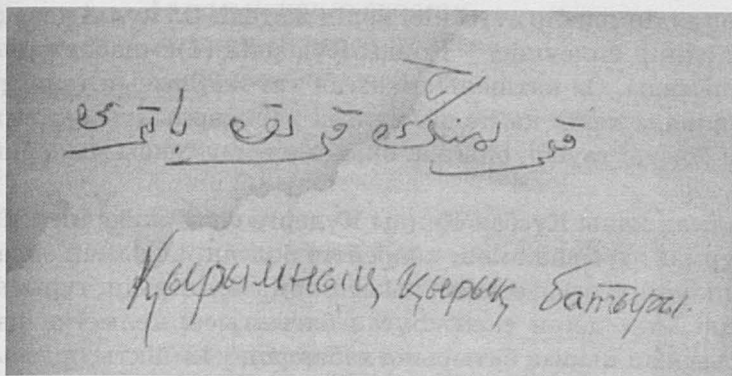 قريمنڭ قرق باترى
Қырымның қырық батыры.